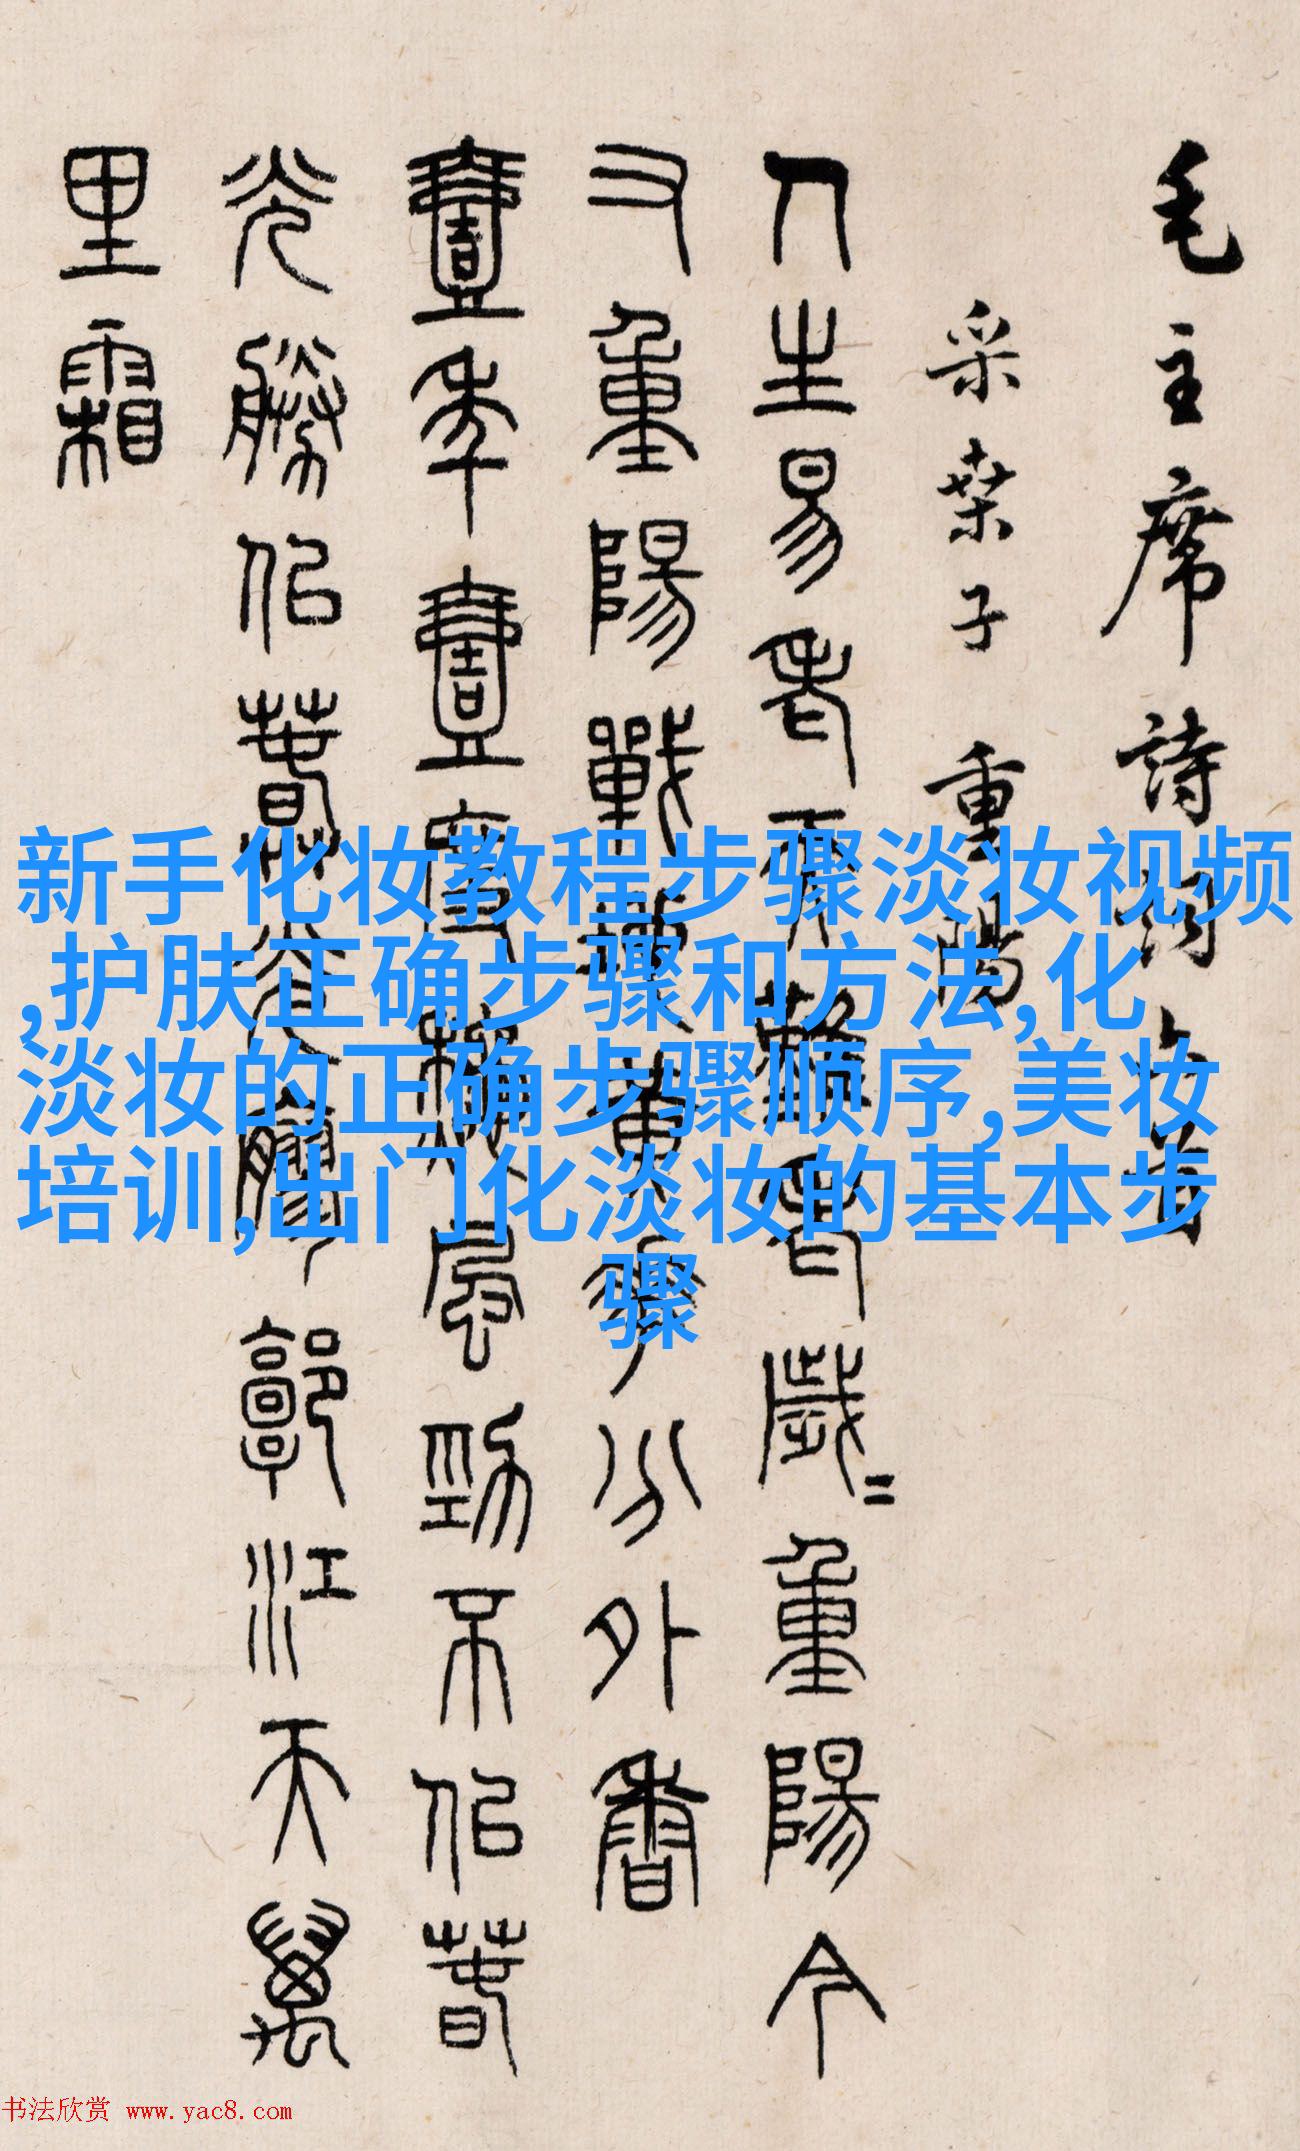 毛主席詩詞六首
采桒子 重陽
人生易老天難老歲〻重陽今
又重陽戰地黃華分外香
壹年壹度穐風勁不佀春
光勝佀春光膠郭江天萬
里霜
新手化妆教程步骤淡妆视频
,护肤正确步骤和方法,化
淡妆的正确步骤顺序,美妆
培训,出门化淡妆的基本步
骤
书法欣赏 www.yac8.com